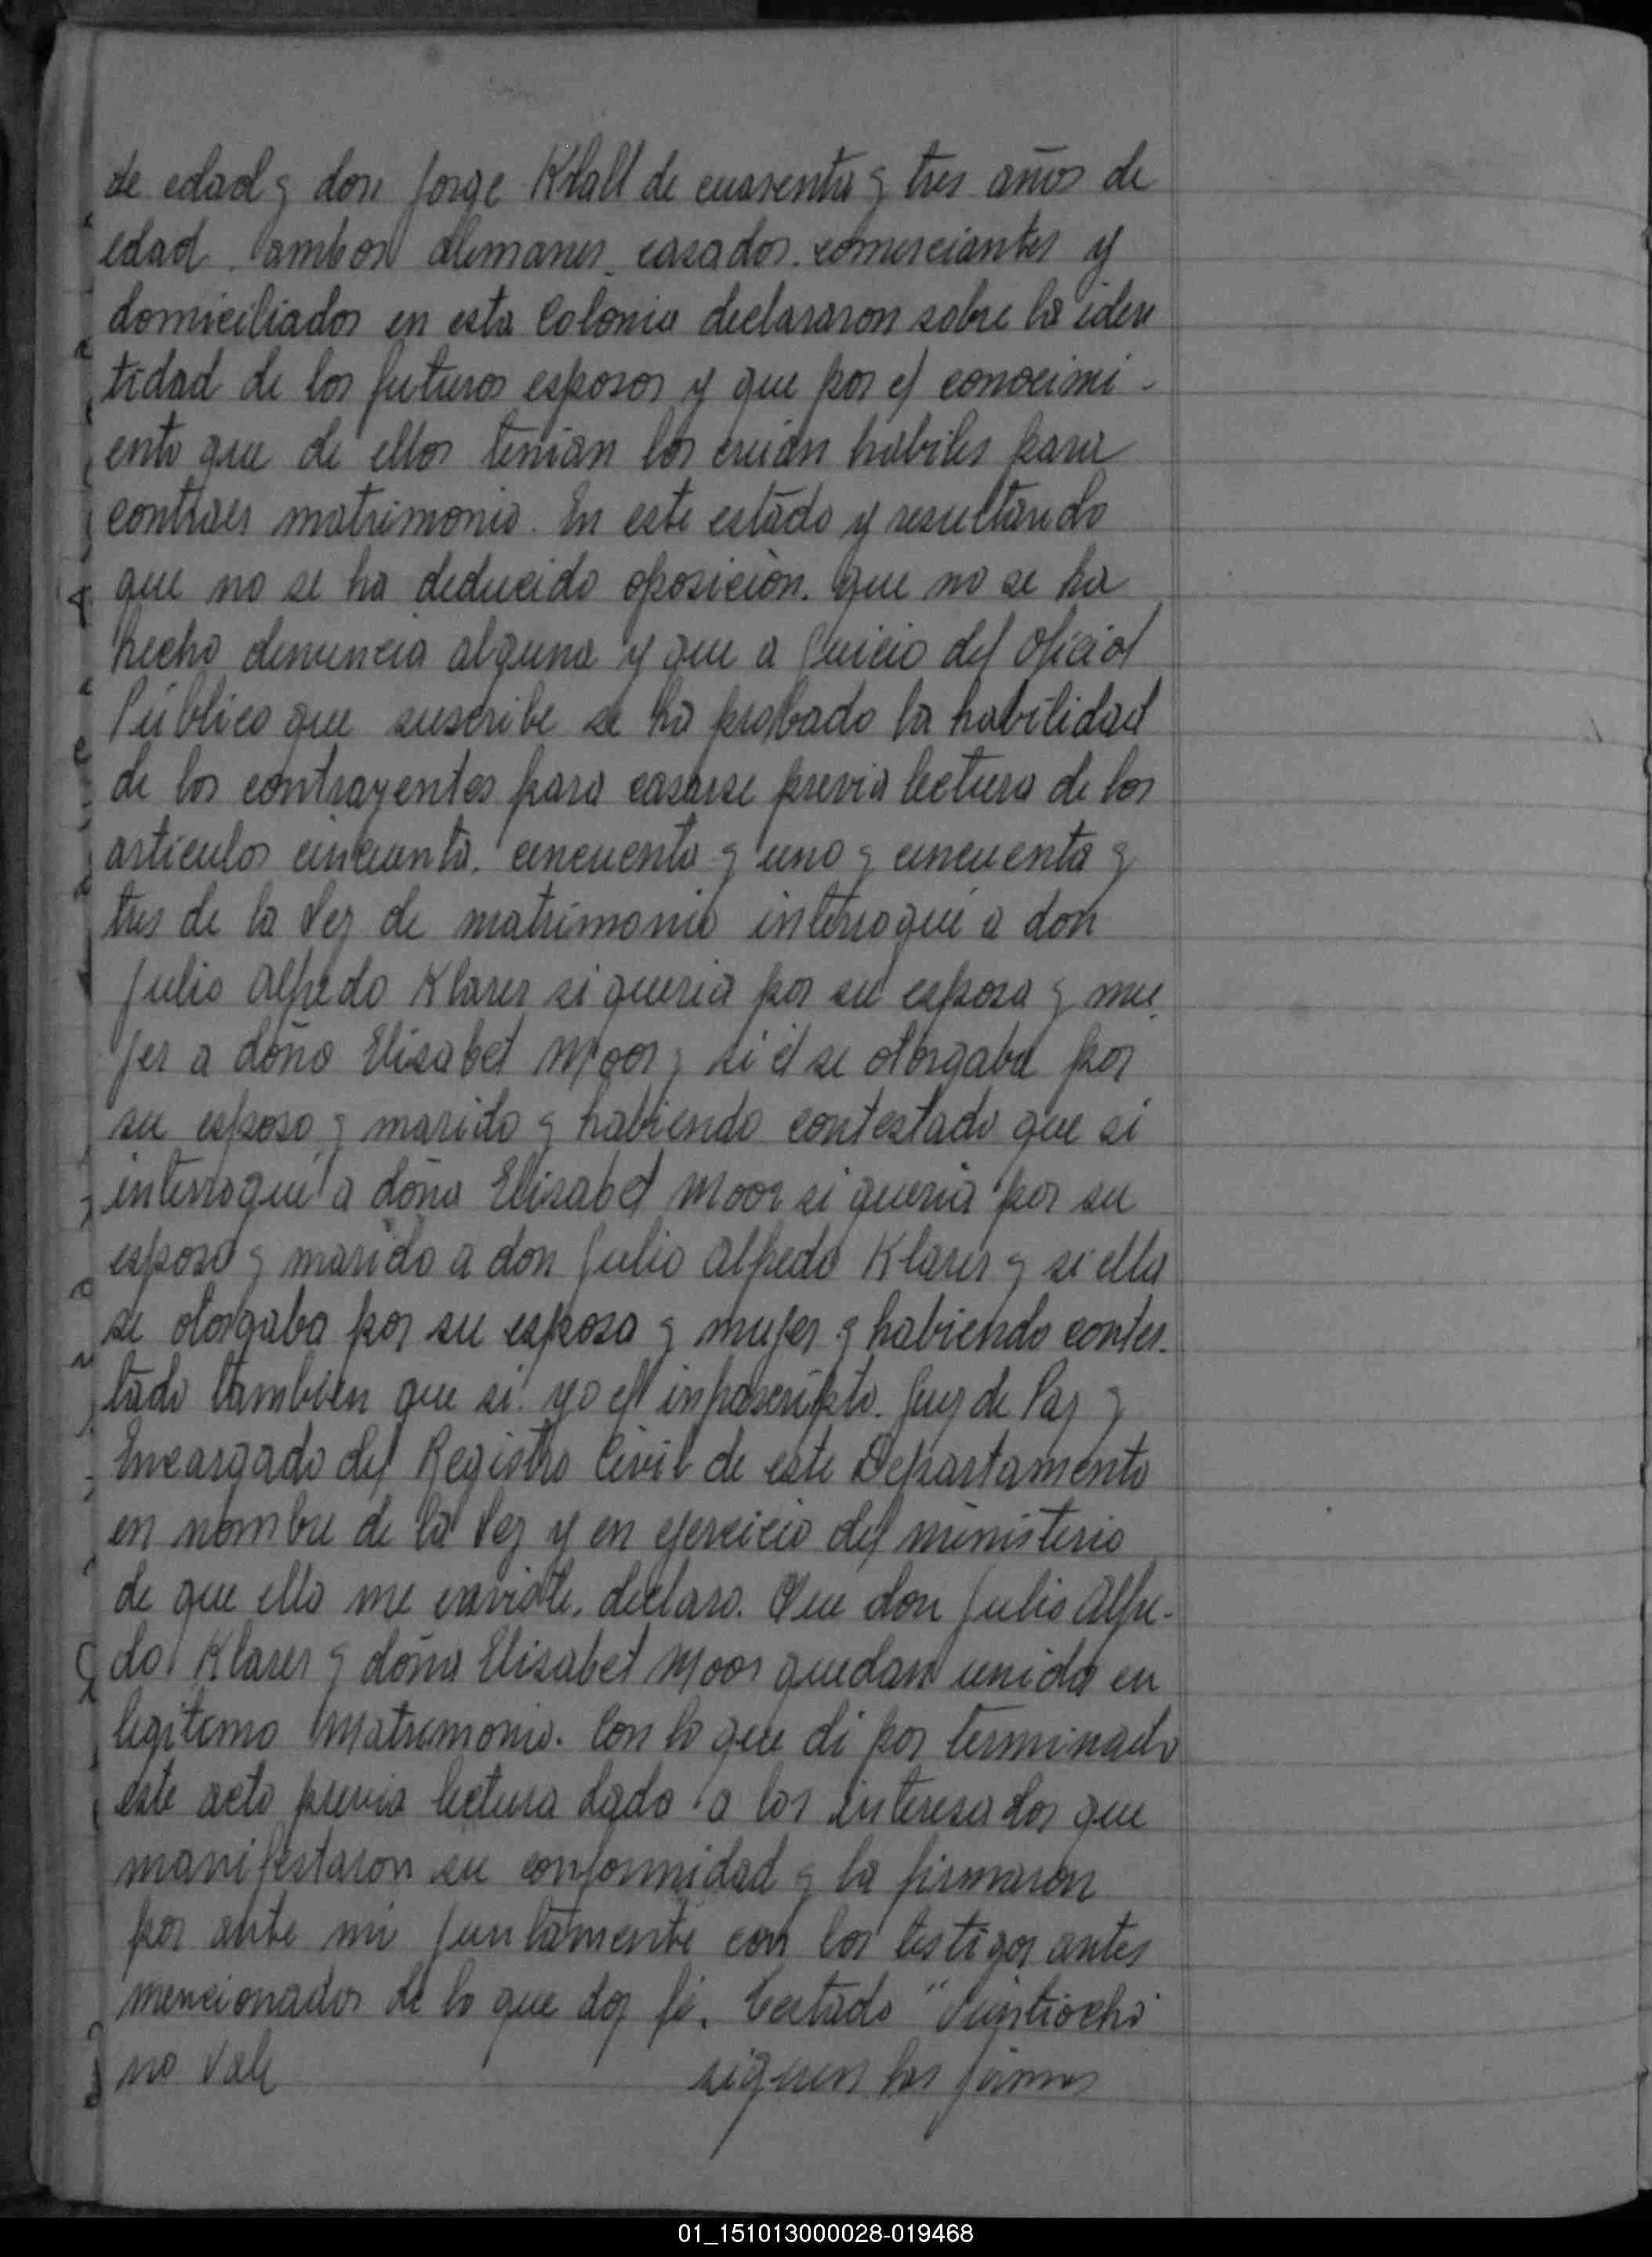 de edad y don Jorge Klall de cuarenta y tres años de
edad. ambos alemanes. casados. comerciantes y
domiciliados en esta Colonia declararon sobre la iden
tidad de los futuros esposos y que por el conocimi-
ento que de ellos tenian los creian habiles para
contraer matrimonio. En este estado y resultando
que no se ha deducido oposición. que no se ha
hecho denuncia alguna y que a juicio del Oficial
Público que suscribe se ha probado la habilidad
de los contrayentes para casarse previa lectura de los
articulos cincuenta. cincuenta y uno y cincuenta y
tres de la Ley de matrimonio interroqué a don
Julio Alfredo Klarer si queria por su esposa y mu-
jer a doña Elisabet Moor y si él se otorgaba por
su esposo y marido y habiendo contestado que si
interroqué a doña Elisabet Moor si queria por su
esposo y marido a don Julio Alfredo Klarer y si ella
se otorgaba por su esposa y mujer y habiendo contes-
tado tambien que si. yo el infrascripto. Juez de Paz y
Encargado del Registro Civil de este Departamento
en nombre de la Ley y en ejercicio del ministerio
de que ella me enviste. declaro. Que don Julio Alfre-
do Klarer y doña Elisabet Moor quedan unido en
legitimo Matrimonio. Con lo que di por terminado
este acto previa lectura dada a los interesados que
manifestaron su conformidad y la firmaron
por ante mi juntamente con los testigos antes
mencionados de lo que doy fé. Testado "Veintiocho"
no Vale siguen las firmas
01_151013000028-019468